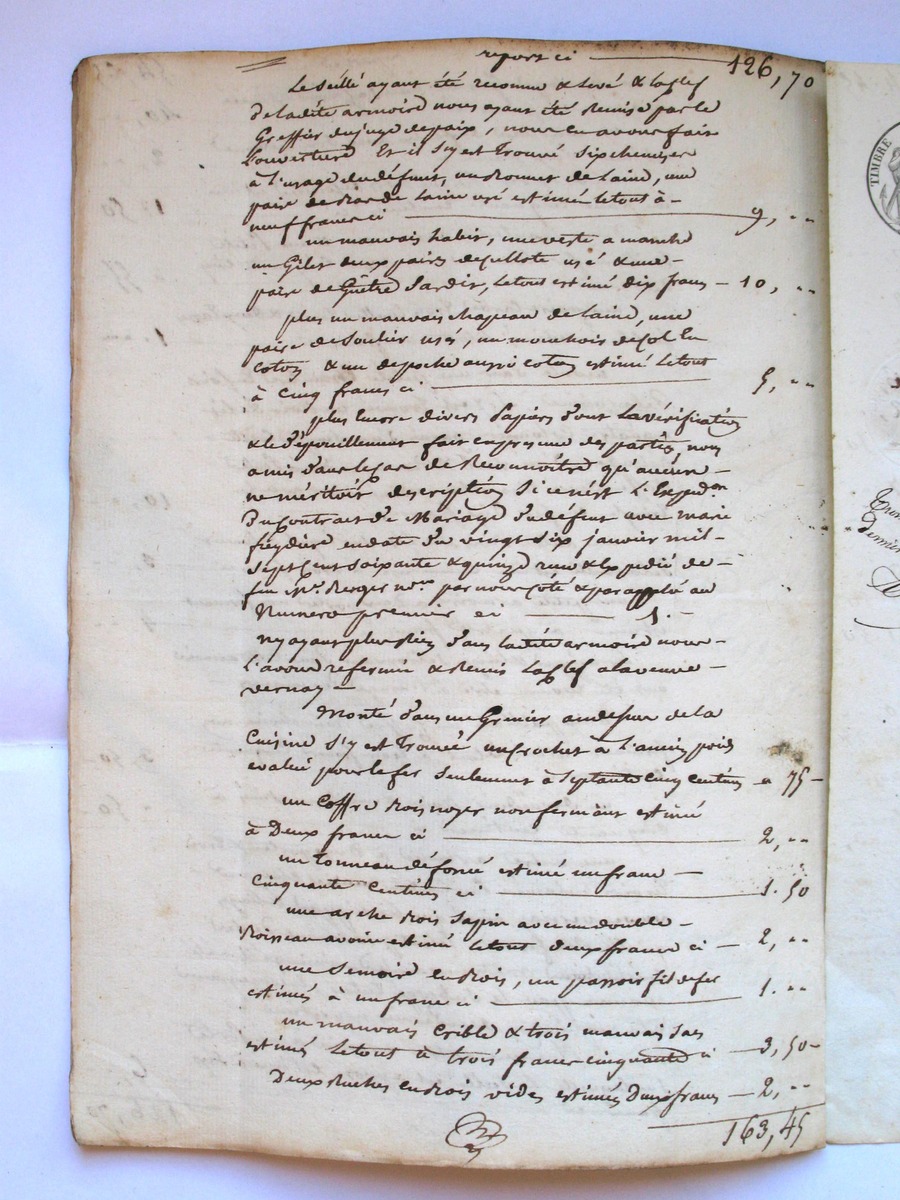 report ci — 126,70
Le scellé ayant été reconnu & levé & la clef
de ladite armoire nous ayant été Remise par le
Greffier du juge de paix, nous en avons fait
l'ouverture Et il s'y est trouvé six chemises
à l'usage du défunt, un Bonnet de laine, une
paire de Bas de laine usé estimé le tout à —
neuf francs ci — 9, ..
un mauvais habit, une veste a manche
un Gilet deux paires de cullote usé & une —
paire de Guêtre Sardir, le tout estimé dix francs — 10, ..
plus un mauvais chapeau de laine, une
paire de soulier usés, un mouchois de col En
coton & un de poche aussi coton estimé le tout
à cinq francs ci — 5, ..
plus Encore divers papiers dont la vérification
& le dépouillement fait en présence des parties nous
a mis dans le cas de Reconnoitre qu'aucun —
ne méritoit description si ce n'est l'Expedon
d'un Contrat de Mariage du défunt avec marie
freydière en date du vingt six janvier mil —
sept cent soixante & quinze recu & Expedié de —
feu Me. Berger nore par nous coté & paraphé au
Numero premier ci — 1. —
ny ayant plus Rien dans ladite armoire nous —
l'avons refermée & Remis la clef a la veuve —
vernay —
Monté dans un Grenier au dessus de la
Cuisine s'y est trouvé un crochet à l'ancien poids
evalué pour le fer seulement à septante cinq centimes — " 75 —
un coffre Bois noyer non fermant estimé
à Deux francs ci — 2, ..
un tonneau défoncé estimé un franc —
cinquante centimes ci — 1. 50
une arche Bois sapin avec un double —
Boisseau avoine estimé le tout deux francs ci — 2, ..
une Semoire en Bois, un passoir fil de fer
estimés à un franc ci — 1. ..
un mauvais crible & trois mauvais sacs
estimés le tout à trois francs cinquante ci — 3, 50 —
Deux Ruches en Bois vides estimés deux francs — 2, ..
163,45
TIMBRE